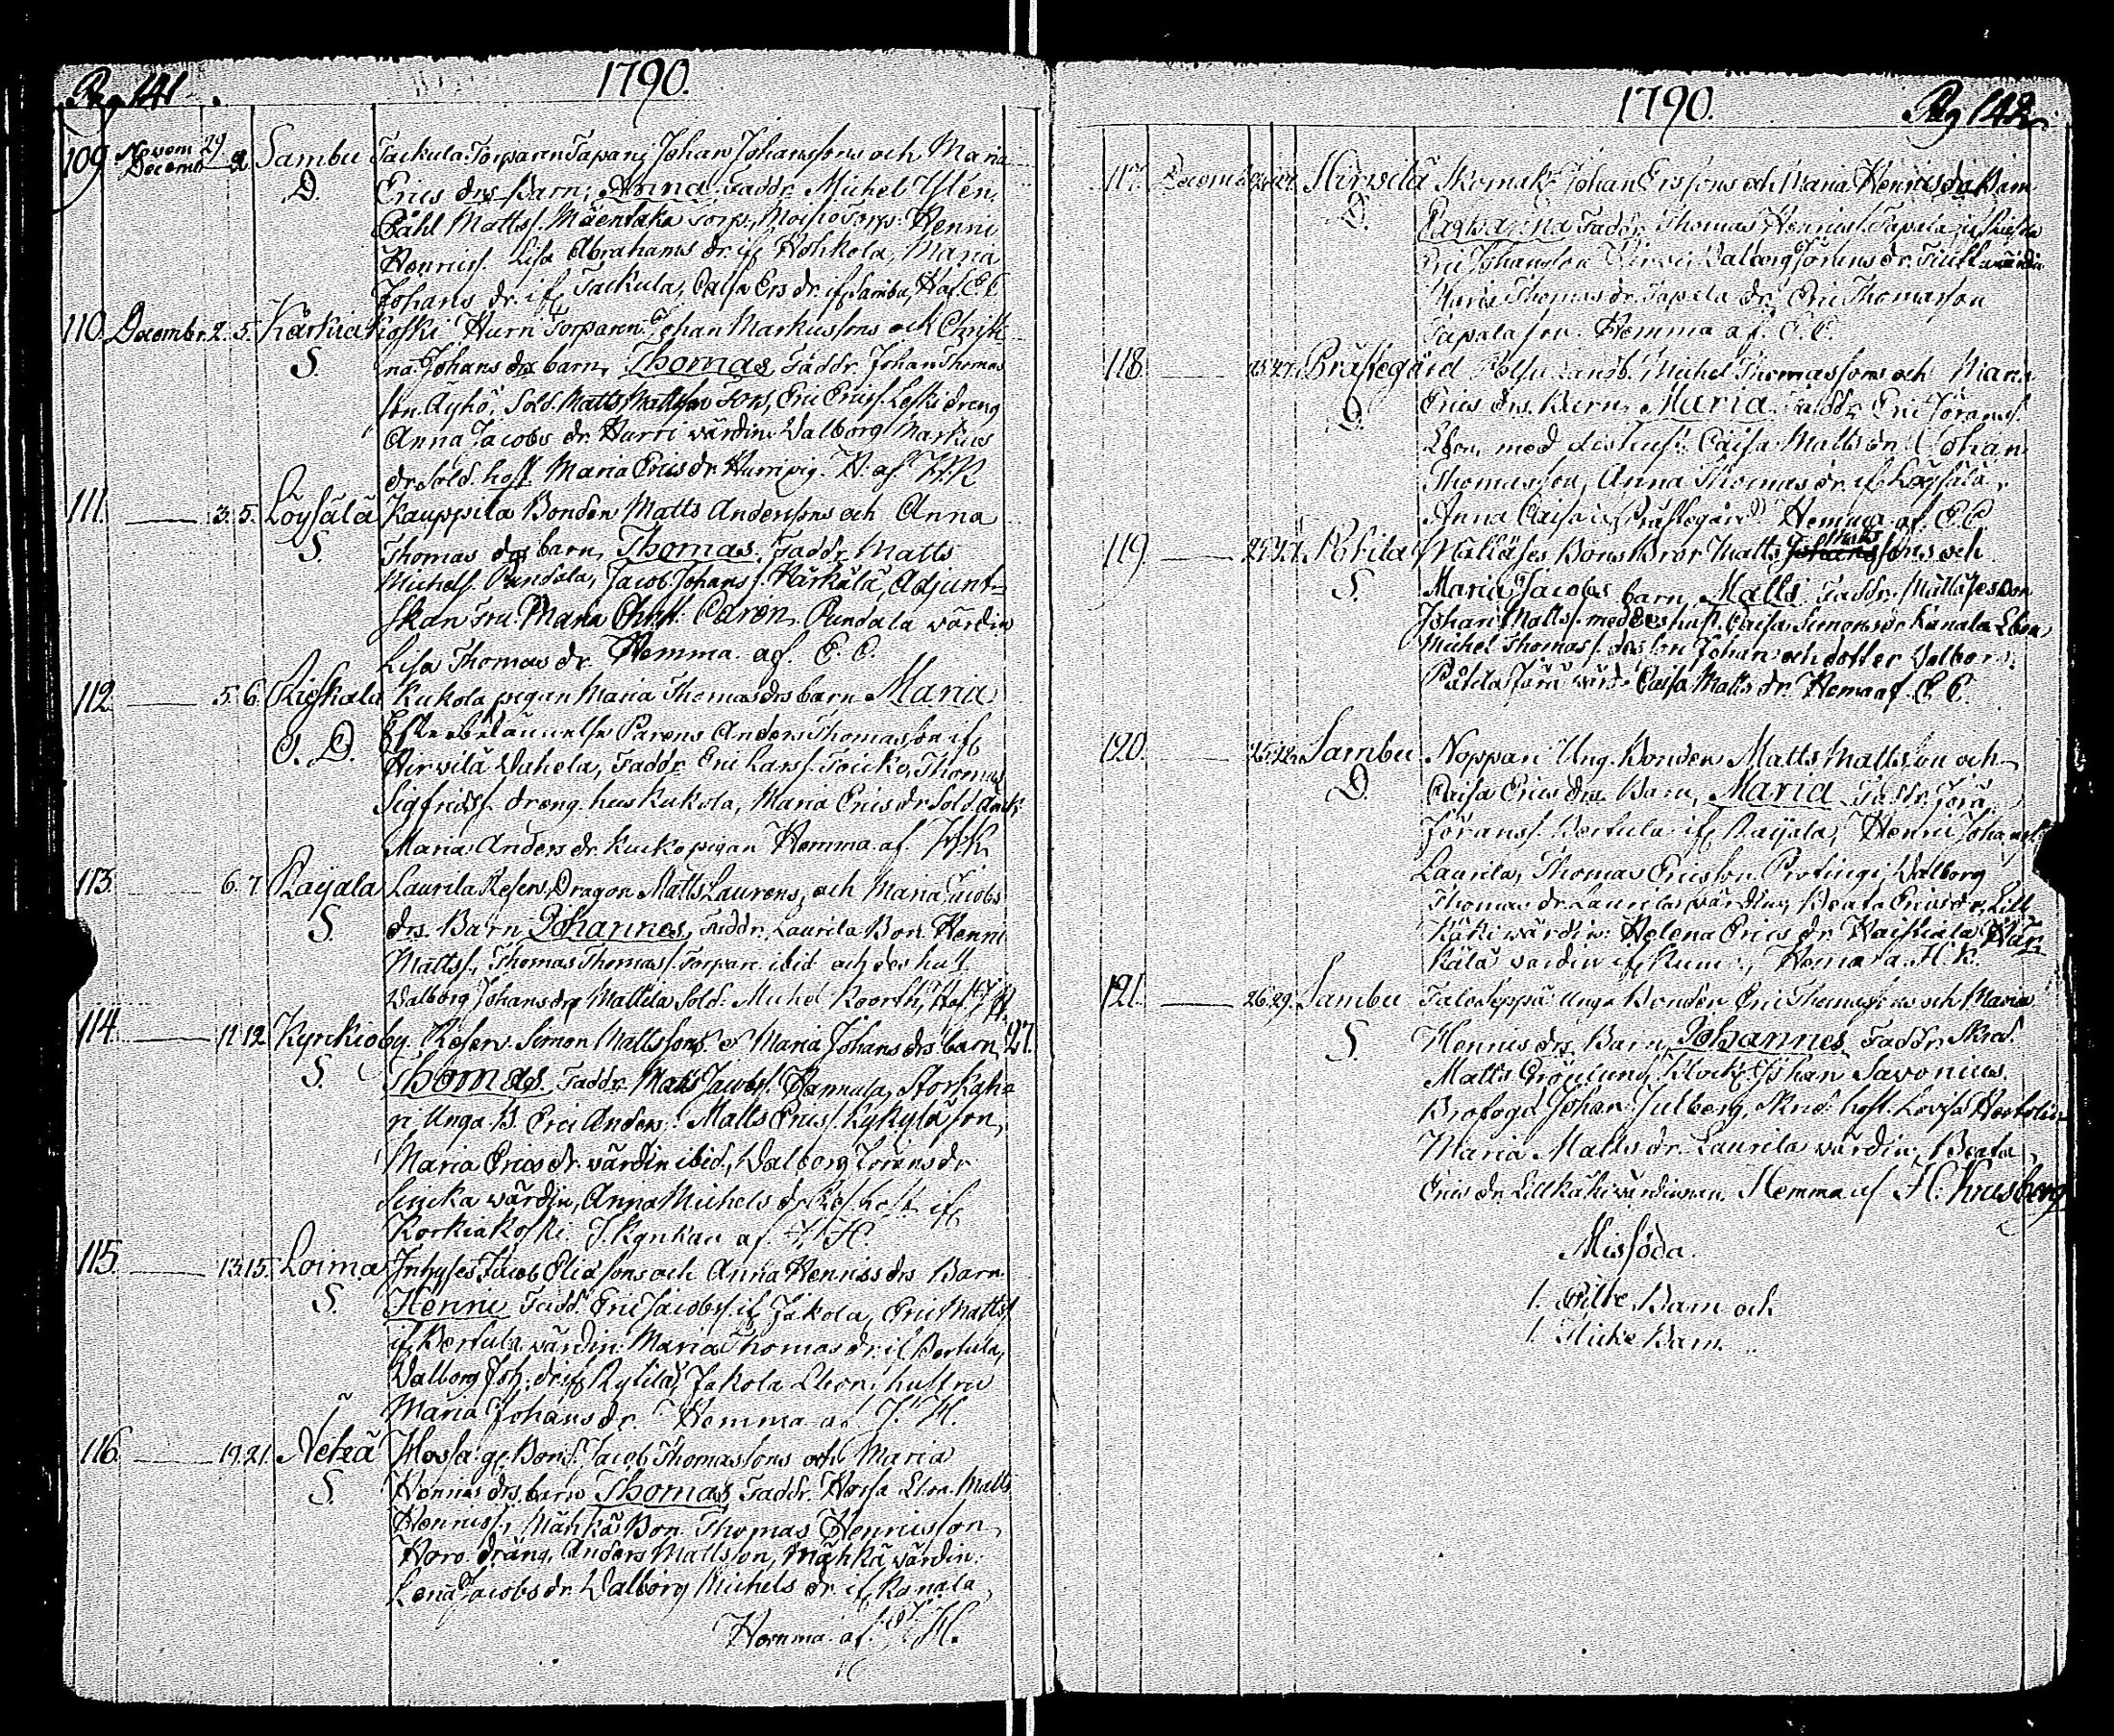 Pag 141.
1790.
109 Novem 29 Decemb 2. Sambu Tackula Torparen Tapani Johan Johanssons och Maria
D. Erics drs Barn, Anna Faddr. Michel Ylén,
Påhl Matts. Mäentaka Torp. Torp. Henric
Henrics. Lisa Abrahams dr. if Hohkola, Maria
Johans dr. if Tackula, Caisa Ers dr. if Samba, H af. E C
110. Decembr. 2. 5. Karkiakoski Hurri Torparen Johan Markussons och Christi
S. na Johans drs barn, Thomas Faddr. Johan Thomas
son Äyhö, Sold. Matts Mattsson Tors, Eric Erics. Leski dreng
Anna Jacobs dr. Hurri wärdin Walborg Markus
dr Sold. host. Maria Erics dr Hurri pig. H. af
111. 3. 5. Loysälä Kauppila Bonden Matts Anderssons och Anna
S. Thomas drs barn, Thomas, Faddr. Matts
Michels. Pundala, Jacob Johans. Härkälä, Adjunt-
skan Fru Maria Caren. Pundala wärdin
Lisa Thomas dr. Hemma af. E. C.
112. 5. 6. Kiskala Kukola pigan Maria Thomas drs barn Maria
O. D. Parens Anders Thomasson if
Hirwilä Uuhela, Faddr. Eric Lars. Toicko, Thomas
Sigfrids. dreng hus Kukola, Maria Erics dr Sold.
Maria Anders dr. Kucko pigan Hemma af
113. 6. 7. Raijala Laurila Reserv Dragon Matts Laurens, och Maria Jacobs
S. drs. Barn Johannes, Faddr. Laurila Bon. Henric
Matts., Thomas Thomas. Torpare ibid och des hust.
Walborg Johans dr Mattila Sold. Michel Koorth, H af
114. 11. 12. Kyrckioby. Reserv. Simon Mattssons & Maria Johans drs barn 27.
S. Thomas. Faddr. Matts Jacobs. Hannula, Storkäh-
ri Unga B. Eric Anders. Matts Erics. Kykylä son,
Maria Erics dr. wärdin ibid, Walborg Jörans dr
wärdin, Anna Michels dr if
Korkiakoski. I Kyrkan af
115. 13. 15. Loima Inhyses Jacob Eliassons och Anna Henrics drs Barn
S. Henric Fadd. Eric Jacobs. if Jakola, Eric Matts
if Bertula wärdin Maria Thomas dr. if Bertula,
Walborg Joh: dr if Kylilä, Jakola Ebon: hustru
Maria Johans dr. Hemma af
116. 19. 21. Vehkä Hossa ge Bons. Jacob Thomassons och Maria
S. Henrics drs. barn Thomas, Faddr. Hossa Ebon. Matts
Henrics., Mähkä Bon. Thomas Henricsson,
dräng, Anders Mattsson, Mähkä wärdin
Lena Jacobs dr. Walborg Michels dr. if Kanala,
Hemma af
1790.
Pag 142.
117. Decemb. Hirwilä Skomak. Johan Erssons och Maria Henrics drs Barn
D. Faddr. Thomas Henrics. Tapela
Eric Johansson Walborg Jörens dr.
Maria Thomas dr. Tapela dr. Eric Thomasson
Tapala son. Hemma af. E. C.
118. 25. 27. Prästegård Michel Thomassons och Maria
D. Erics drs. Barn, Maria. Faddr. Eric Jörans.
Ebon. med des hust. Caisa Matts dr. Johan
Thomasson, Anna Thomas dr. if Loysälä,
Anna Caisa if Prästegård. Hemma af. E. C.
119. 25. 27. Pohila Mälläses Bons Bror Matts Johanssons och
S. Maria Jacobs barn, Matts Faddr. Mälläses Bon
Johan Matts. med des hust. Caisa Simons dr Kanala Ebon
Michel Thomas. des son Johan och dotter Walborg.
Caisa Matts dr. Hema af. E. C.
120. 25. 28. Sambu Noppari Ung. Bonden Matts Mattsson och
D. Caisa Erics drs Barn, Maria Faddr. Jöra
Jörans. Bertula if Raijala, Henric Johans.
Laurila, Thomas Ericsson. Protingi, Walborg
Thomas dr. Laurila wärdin, Beata Erics dr. Lill
Kähi wärdin: Helena Erics dr. Här-
kälä wärdin if Kumi, Hema a. H. K.
121. 26. 29. Sambu Talo Seppä Unga Bonden Eric Thomassons och Maria
S. Henrics drs. Barn, Johannes Faddr. Skräd.
Matts Grönlund, Klock. Johan Savonius.
Brofogd Johan Julberg, Skrd. host. Lovisa
Maria Matts dr. Laurila wärdin, Beata
Erics dr. Lillkähi wärdinnan. Hemma af H. Kreisberg
Misföda.
1. Pilte Barn och
1. Flicke Barn.